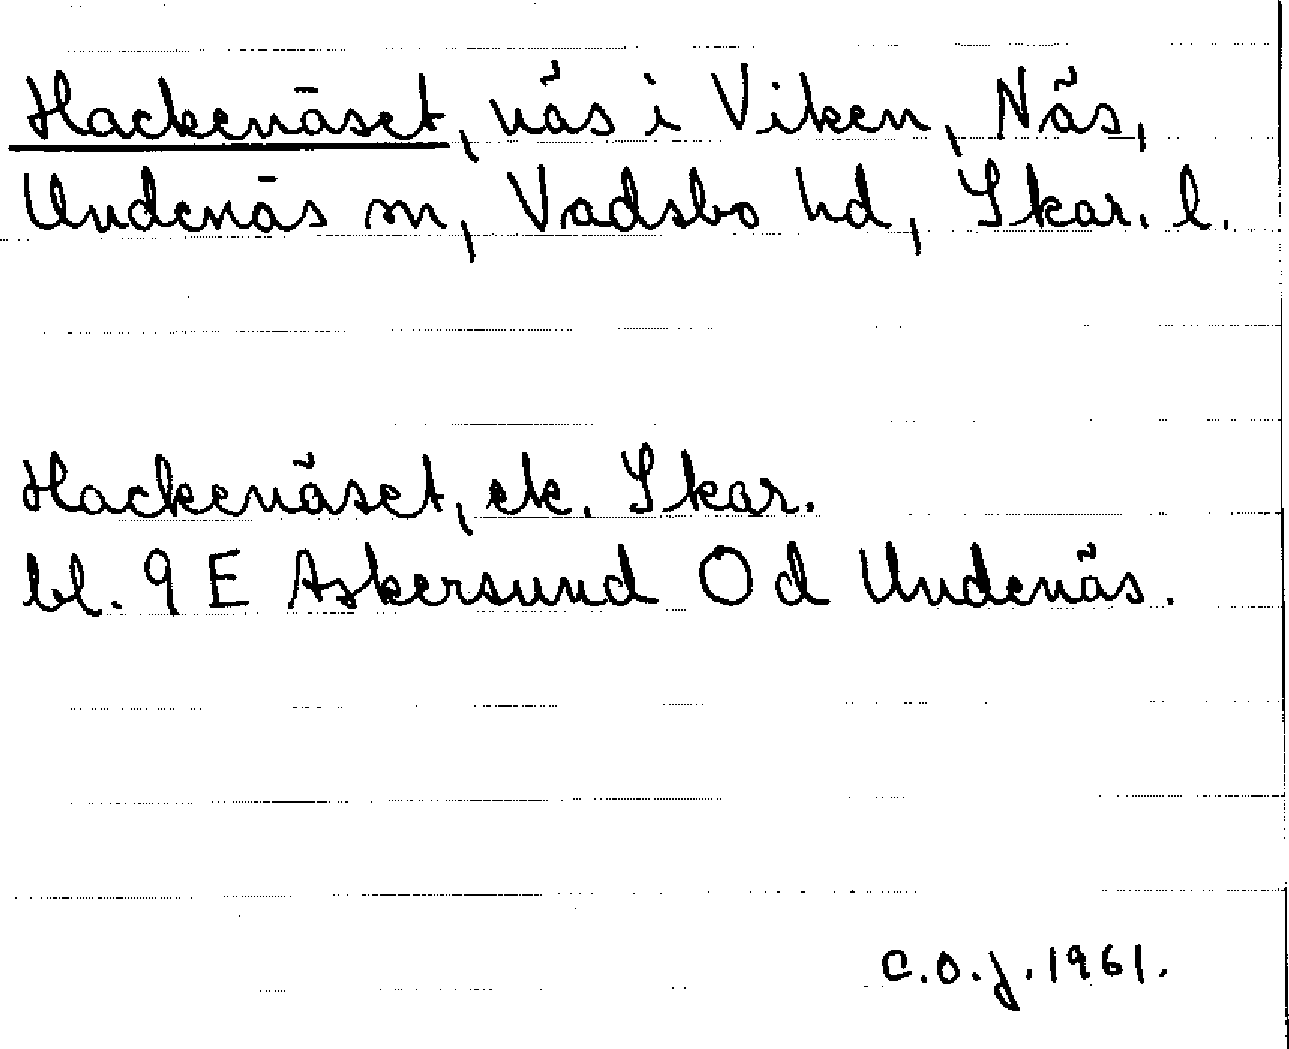 Hackenäset, näs i Viken, Näs,
Undenäs sn, Vadsbo hd, Skar. l.
Hackenäset, ek. Skar.
bl. 9 E Askersund 0 d Undenäs.
C.O.J. 1961.